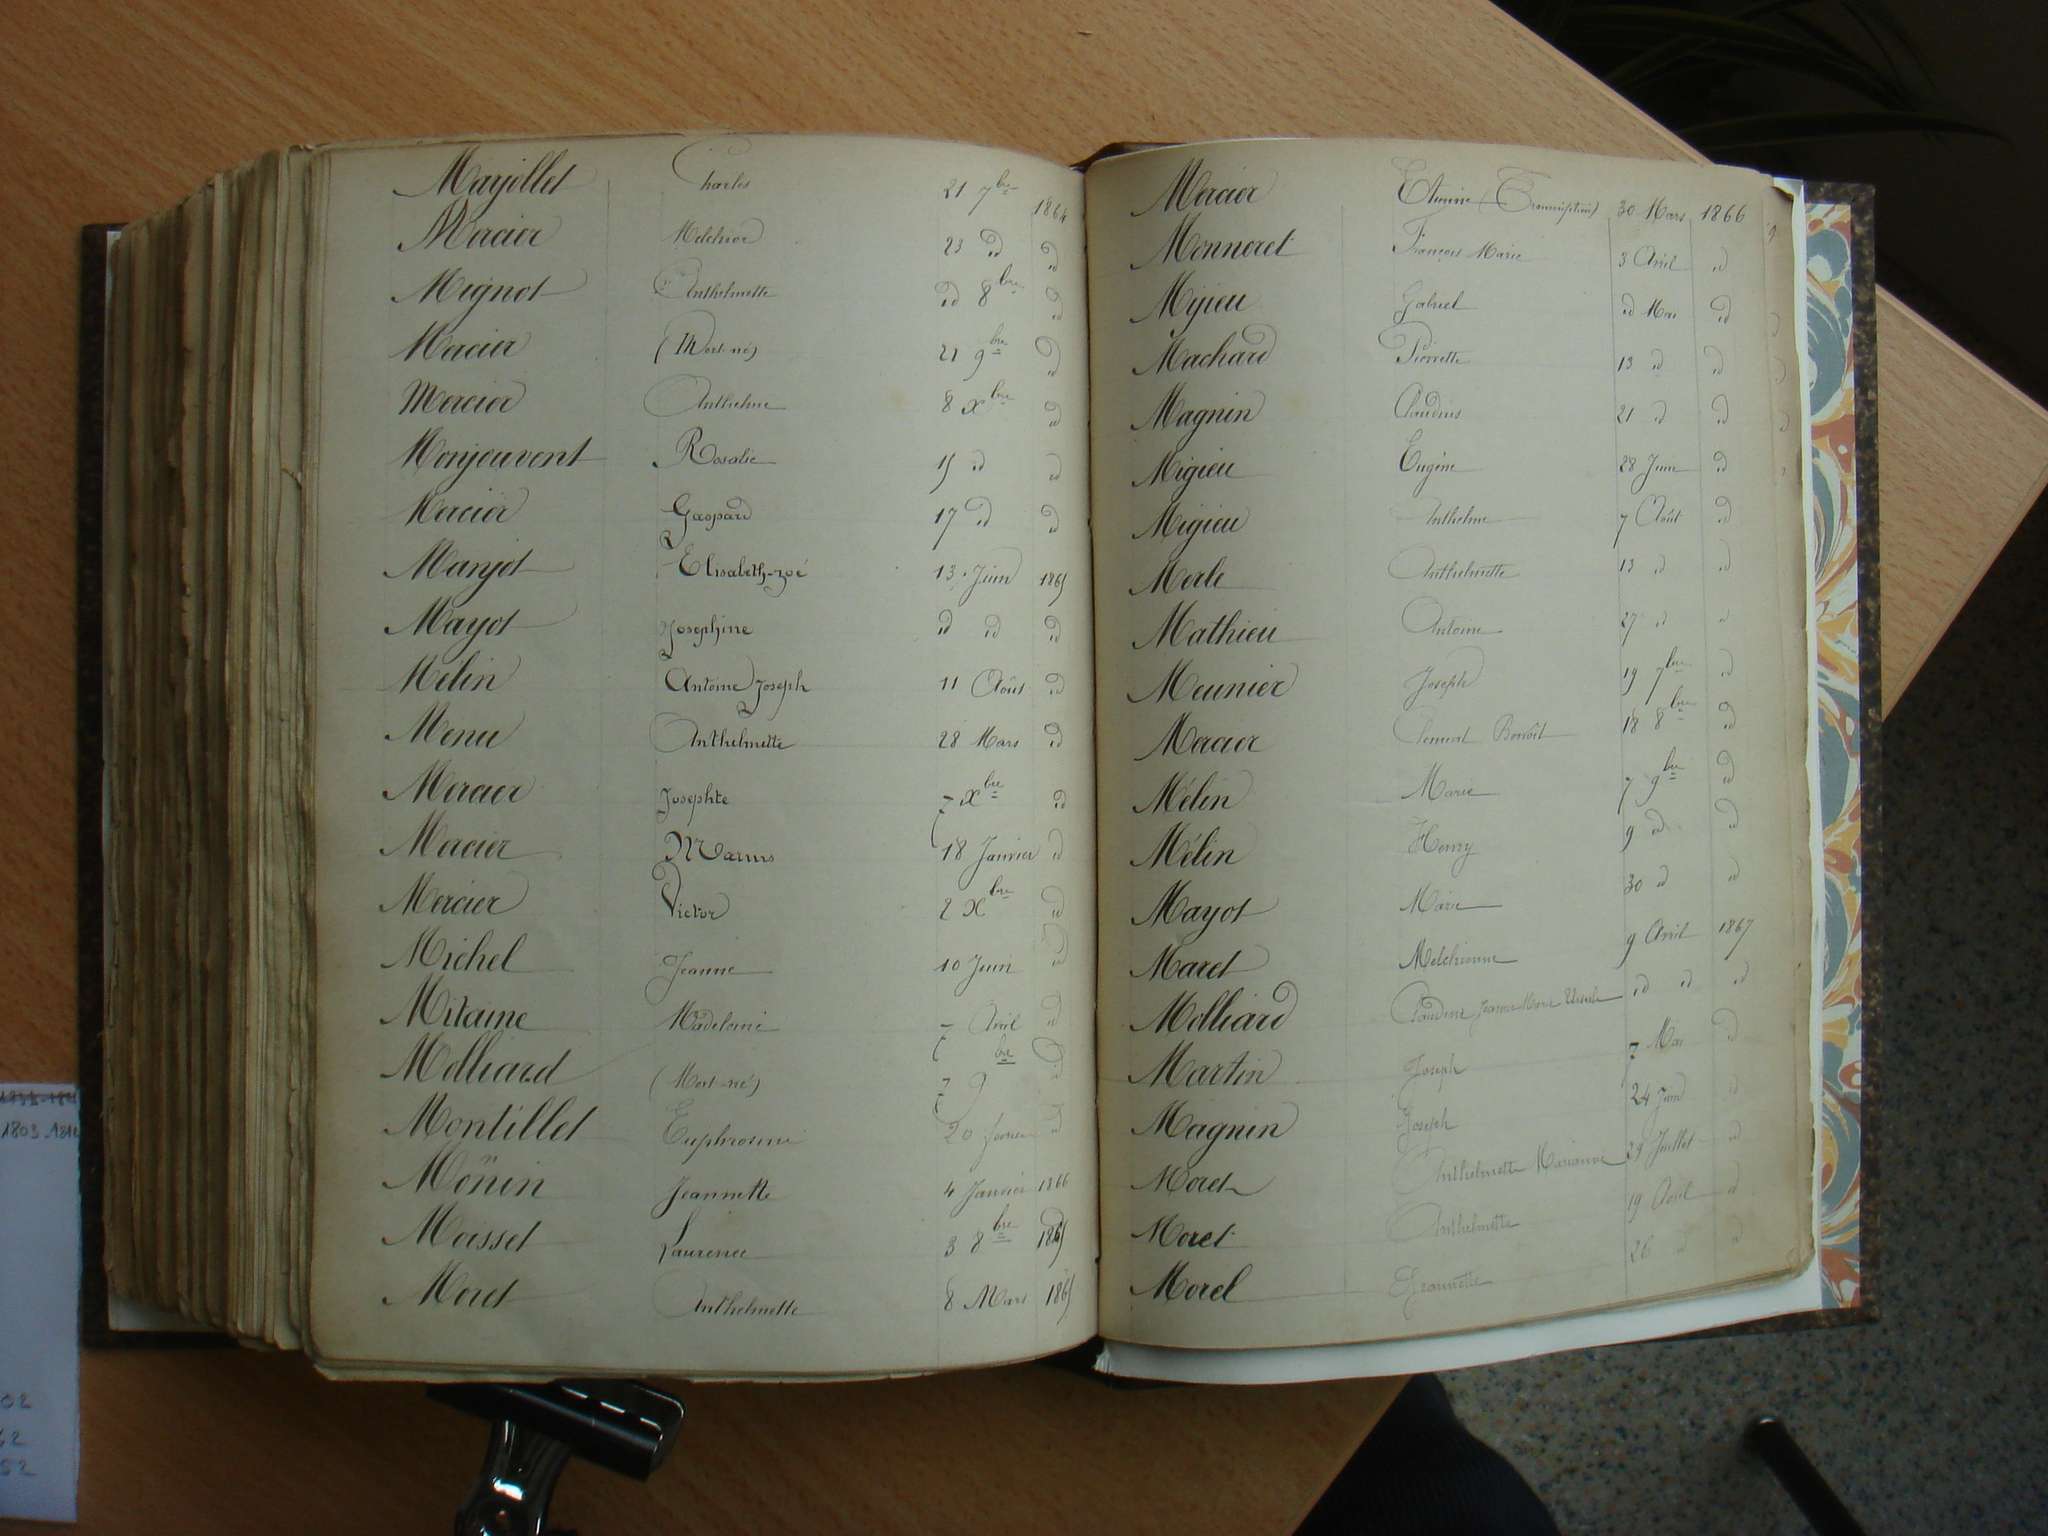 Marjollet Charles 21 7bre 1864
Mercier Melchior 23 id id
Mignot Anthelmette id 8bre id
Mercier (Mort-né) 21 9bre id
Mercier Anthelme 8 Xbre id
Monjeuvent Rosalie 15 id id
Mercier Gaspard 17 id id
Manjot Elisabeth-zoé 13 Juin 1865
Mayot Josephine id id id
Melin Antoine Joseph 11 Août id
Menu Anthelmette 28 Mars id
Mercier Josephte 7 Xbre id
Mercier Marius 18 Janvier id
Mercier Victor 2 Xbre id
Michel Jeanne 10 Juin id
Mitaine Madeleine 7 Avril id
Molliard (Mort-né) 7 9bre id
Montillet Euphrosine 20 février id
Monin Jeannette 4 Janvier 1866
Moisset Laurence 3 8bre 1865
Moret Anthelmette 8 Mars 1865
Mercier Etienne (Transcription) 30 Mars 1866
Monneret François Marie 3 Avril id
Mijieu Gabriel id Mai id
Machard Pierrette 13 id id
Magnin Claudius 21 id id
Migieu Eugène 28 Juin id
Migieu Anthelme 7 Août id
Merle Anthelmette 13 id id
Mathieu Antoine 27 id id
Meunier Joseph 19 7bre id
Mercier Clement Benoit 18 8bre id
Mélin Marie 7 9bre id
Mélin Henry 9 id id
Mayot Marie 30 id id
Maret Melchionne 9 Avril 1867
Molliard Claudine Jeanne Marie Ursule id id id
Martin Joseph 7 Mai id
Magnin Joseph 24 Juin id
Moret Anthelmette Marianne 29 Juillet id
Moret Anthelmette 19 Avril id
Morel Jeannette 26 id id
1803-1812
02
62
52